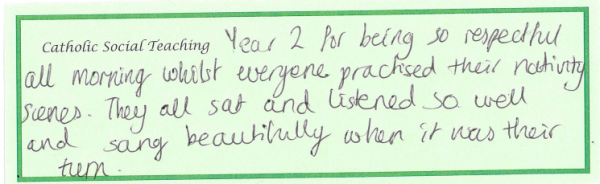 Catholic Social Teaching Year 2 for being so respectful
all morning whilst everyone practised their nativity
scenes. They all sat and listened so well
and sang beautifully when it was their
turn.